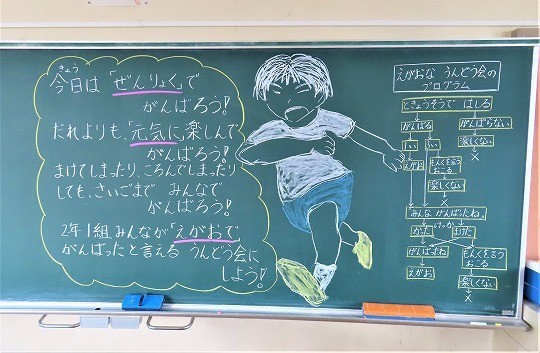 きょう
今日は「ぜんりょく」で
がんばろう!
だれよりも、「元気に」楽しんで
がんばろう!
まけてしまったり、ころんでしまったり
しても、さいごまで みんなで
がんばろう!
2年1組みんなが「えがおで
がんばったと言える うんどう会に
しよう!
えがおな うんどう会の
プログラム
ときょうそうで はしる
がんばる
がんばらない
楽しくない
×
えがお
もんくを言う
おこる
楽しくない
×
「みんな がんばったね。」
けっか
かった
まけた
がんばったね
もんくを言う
おこる
えがお
楽しくない
×